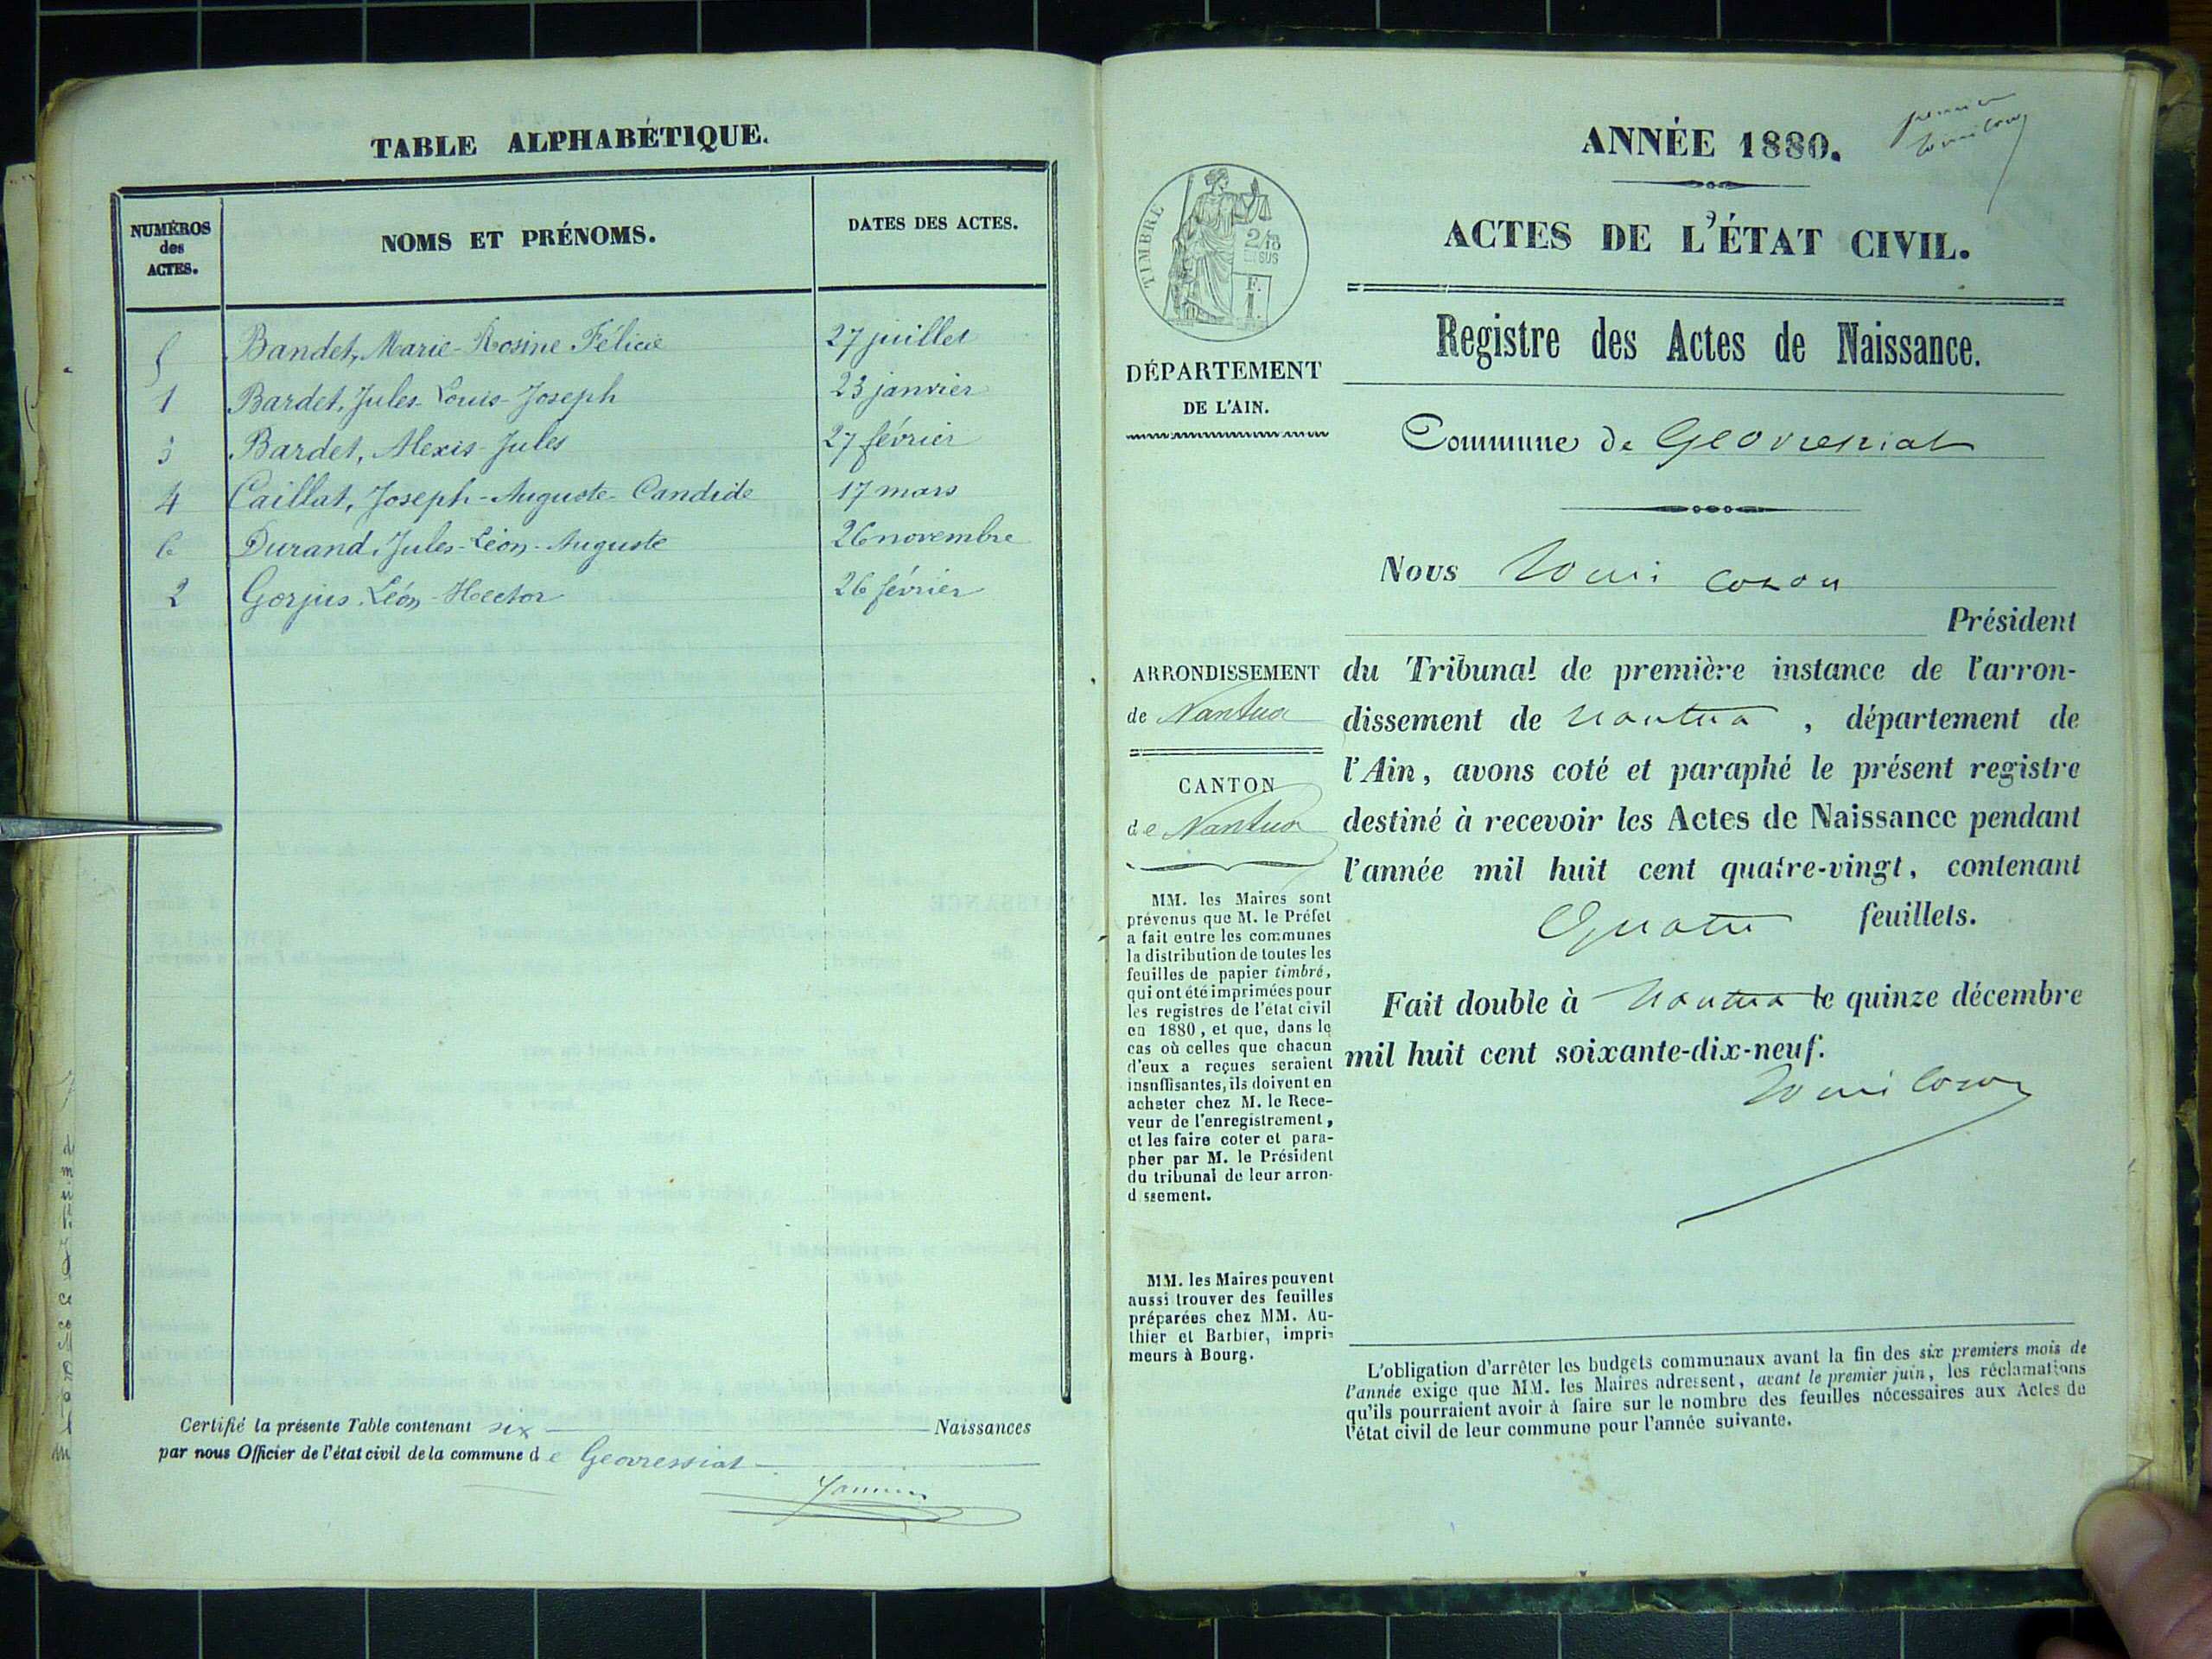 TABLE ALPHABÉTIQUE.
NUMÉROS
des
ACTES.
NOMS ET PRÉNOMS.
DATES DES ACTES.
5 Bandet, Marie-Rosine Félicie 27 juillet
1 Bardet, Jules-Louis-Joseph 23 janvier
3 Bardet, Alexis-Jules 27 février
4 Caillat, Joseph-Auguste-Candide 17 mars
6 Durand, Jules-Léon-Auguste 26 novembre
2 Gorjus, Léon-Hector 26 février
Certifié la présente Table contenant six Naissances
par nous Officier de l'état civil de la commune de Géovressiat
ANNÉE 1880.
ACTES DE L'ÉTAT CIVIL.
TIMBRE
2/10
EN SUS
F.
1.
Registre des Actes de Naissance.
DÉPARTEMENT
DE L'AIN.
Commune de Géovressiat
Nous
Président
ARRONDISSEMENT
de Nantua
CANTON
de Nantua
du Tribunal de première instance de l'arron-
dissement de Nantua, département de
l'Ain, avons coté et paraphé le présent registre
destiné à recevoir les Actes de Naissance pendant
l'année mil huit cent quatre-vingt, contenant
Quatre feuillets.
Fait double à Nantua le quinze décembre
mil huit cent soixante-dix-neuf.
MM. les Maires sont
prévenus que M. le Préfet
a fait entre les communes
la distribution de toutes les
feuilles de papier timbré,
qui ont été imprimées pour
les registres de l'état civil
en 1880, et que, dans le
cas où celles que chacun
d'eux a reçues seraient
insuffisantes, ils doivent en
acheter chez M. le Rece-
veur de l'enregistrement,
et les faire coter et para-
pher par M. le Président
du tribunal de leur arron-
d ssement.
MM. les Maires peuvent
aussi trouver des feuilles
préparées chez MM. Au-
thier et Barbier, impri-
meurs à Bourg.
L'obligation d'arrêter les budgets communaux avant la fin des six premiers mois de
l'année exige que MM. les Maires adressent, avant le premier juin, les réclamations
qu'ils pourraient avoir à faire sur le nombre des feuilles nécessaires aux Actes de
l'état civil de leur commune pour l'année suivante.